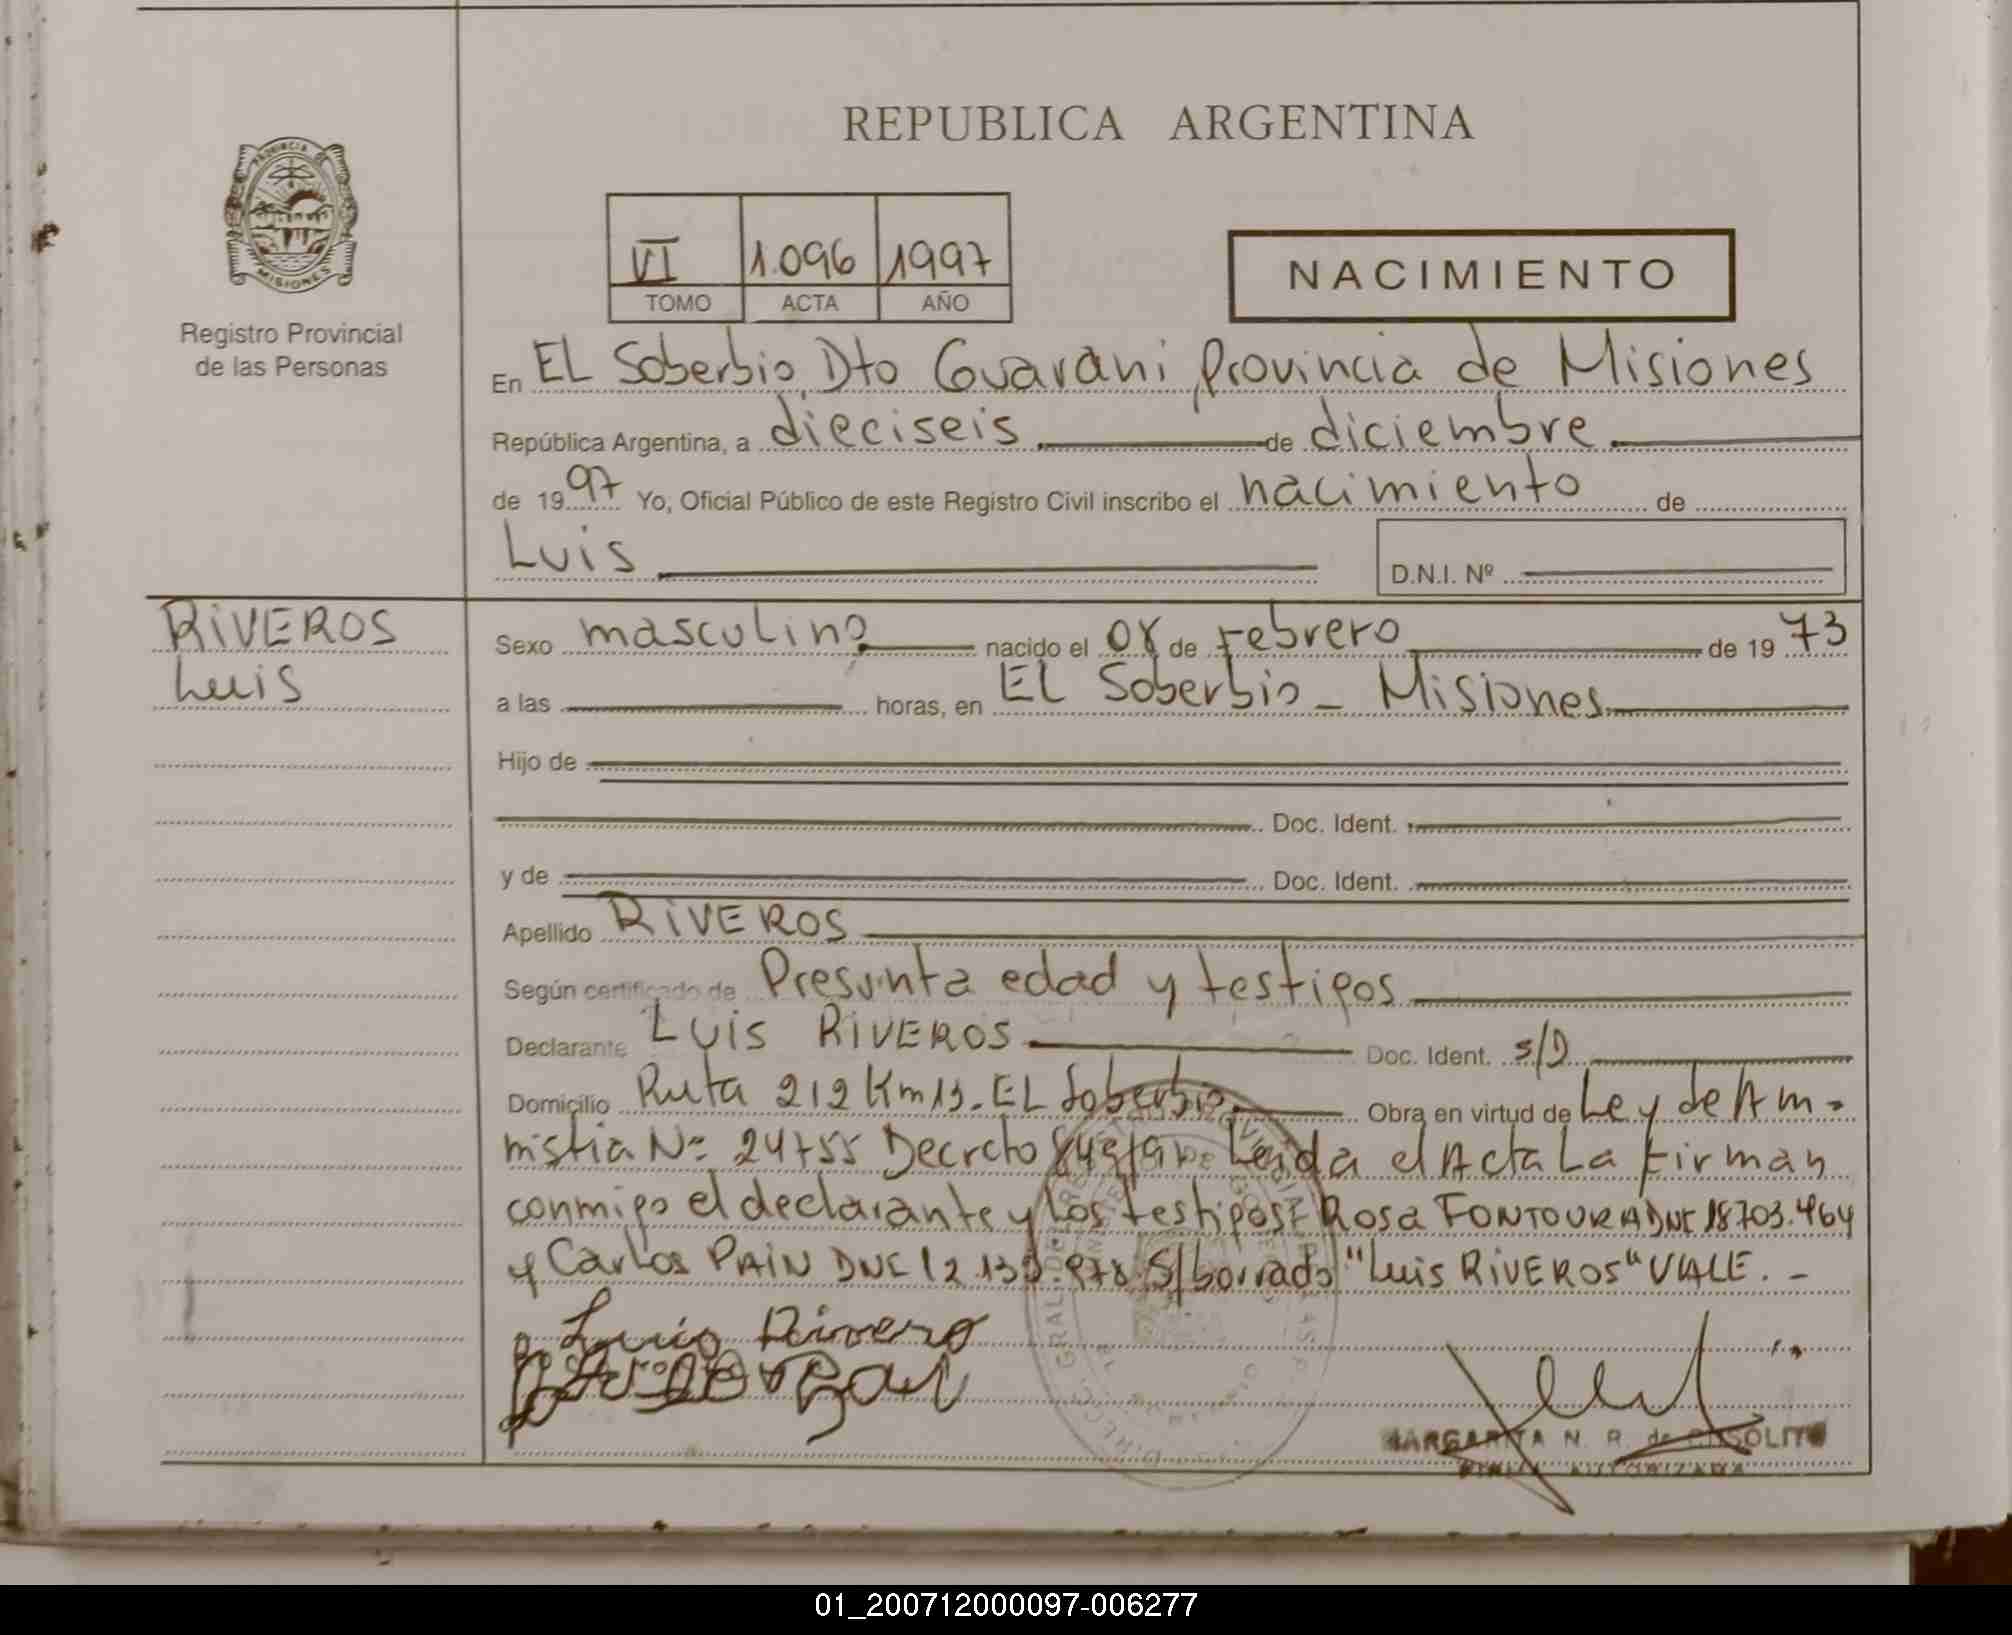 REPUBLICA ARGENTINA
PROVINCIA DE
MISIONES
Registro Provincial
de las Personas
VI 1.096 1997
TOMO ACTA AÑO
NACIMIENTO
En EL Soberbio, Dto Guarani, Provincia de Misiones
República Argentina, a dieciseis de diciembre
de 1997 Yo, Oficial Público de este Registro Civil inscribo el nacimiento de
Luis
D.N.I. Nº
RIVEROS
Luis
Sexo masculino nacido el 08 de febrero de 1973
a las horas, en EL Soberbio - Misiones
Hijo de
Doc. Ident.
y de Doc. Ident.
Apellido RIVEROS
Según certificado de Presunta edad y testigos
Declarante Luis RIVEROS Doc. Ident. S/D
Domicilio Ruta 212 Km 13. EL Soberbio Obra en virtud de Ley de Am-
nistia Nº 24755 Decreto Leida el Acta La firman
conmigo el declarante y Los testigos: Rosa FONTOURA DNI 18.703.464
y Carlos PAIN DNI S/borrado "Luis RIVEROS" VALE. -
Luis Rivero
MARGARITA N. R. de
FIRMA AUTORIZADA
01_200712000097-006277